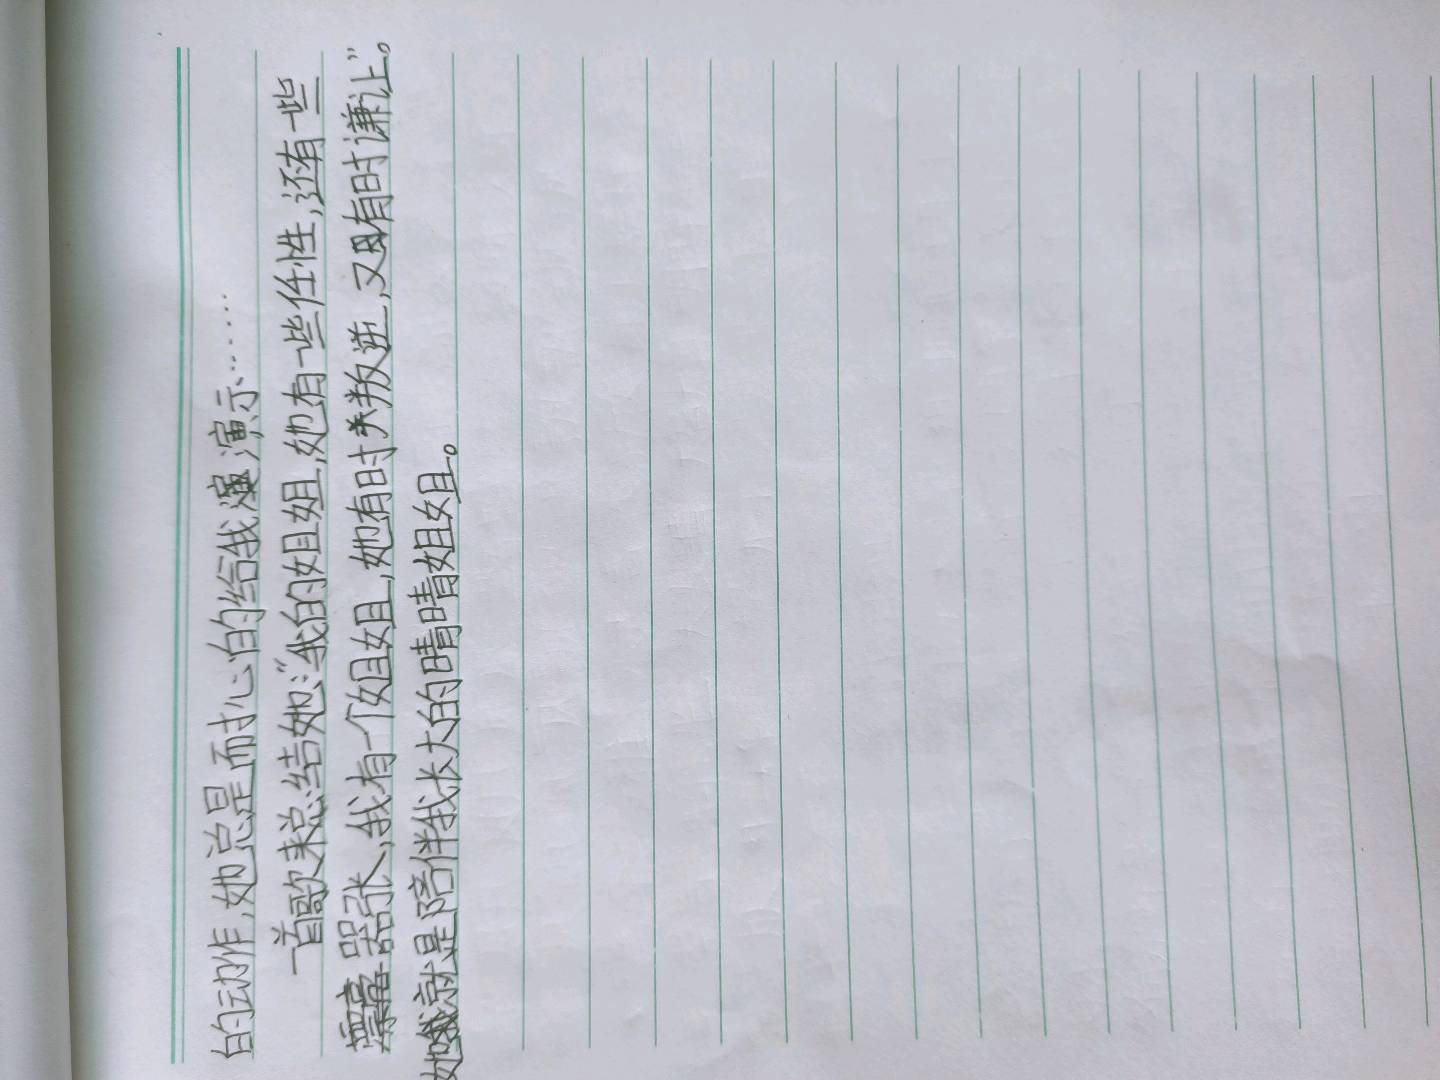 的动作，她总是耐心的给我演示……
一首歌来总结她：“我的姐姐，她有一些任性，还有一些
嚣张，我有一个姐姐，她有时叛逆，又有时谦让”。
她就是陪伴我长大的晴晴姐姐。